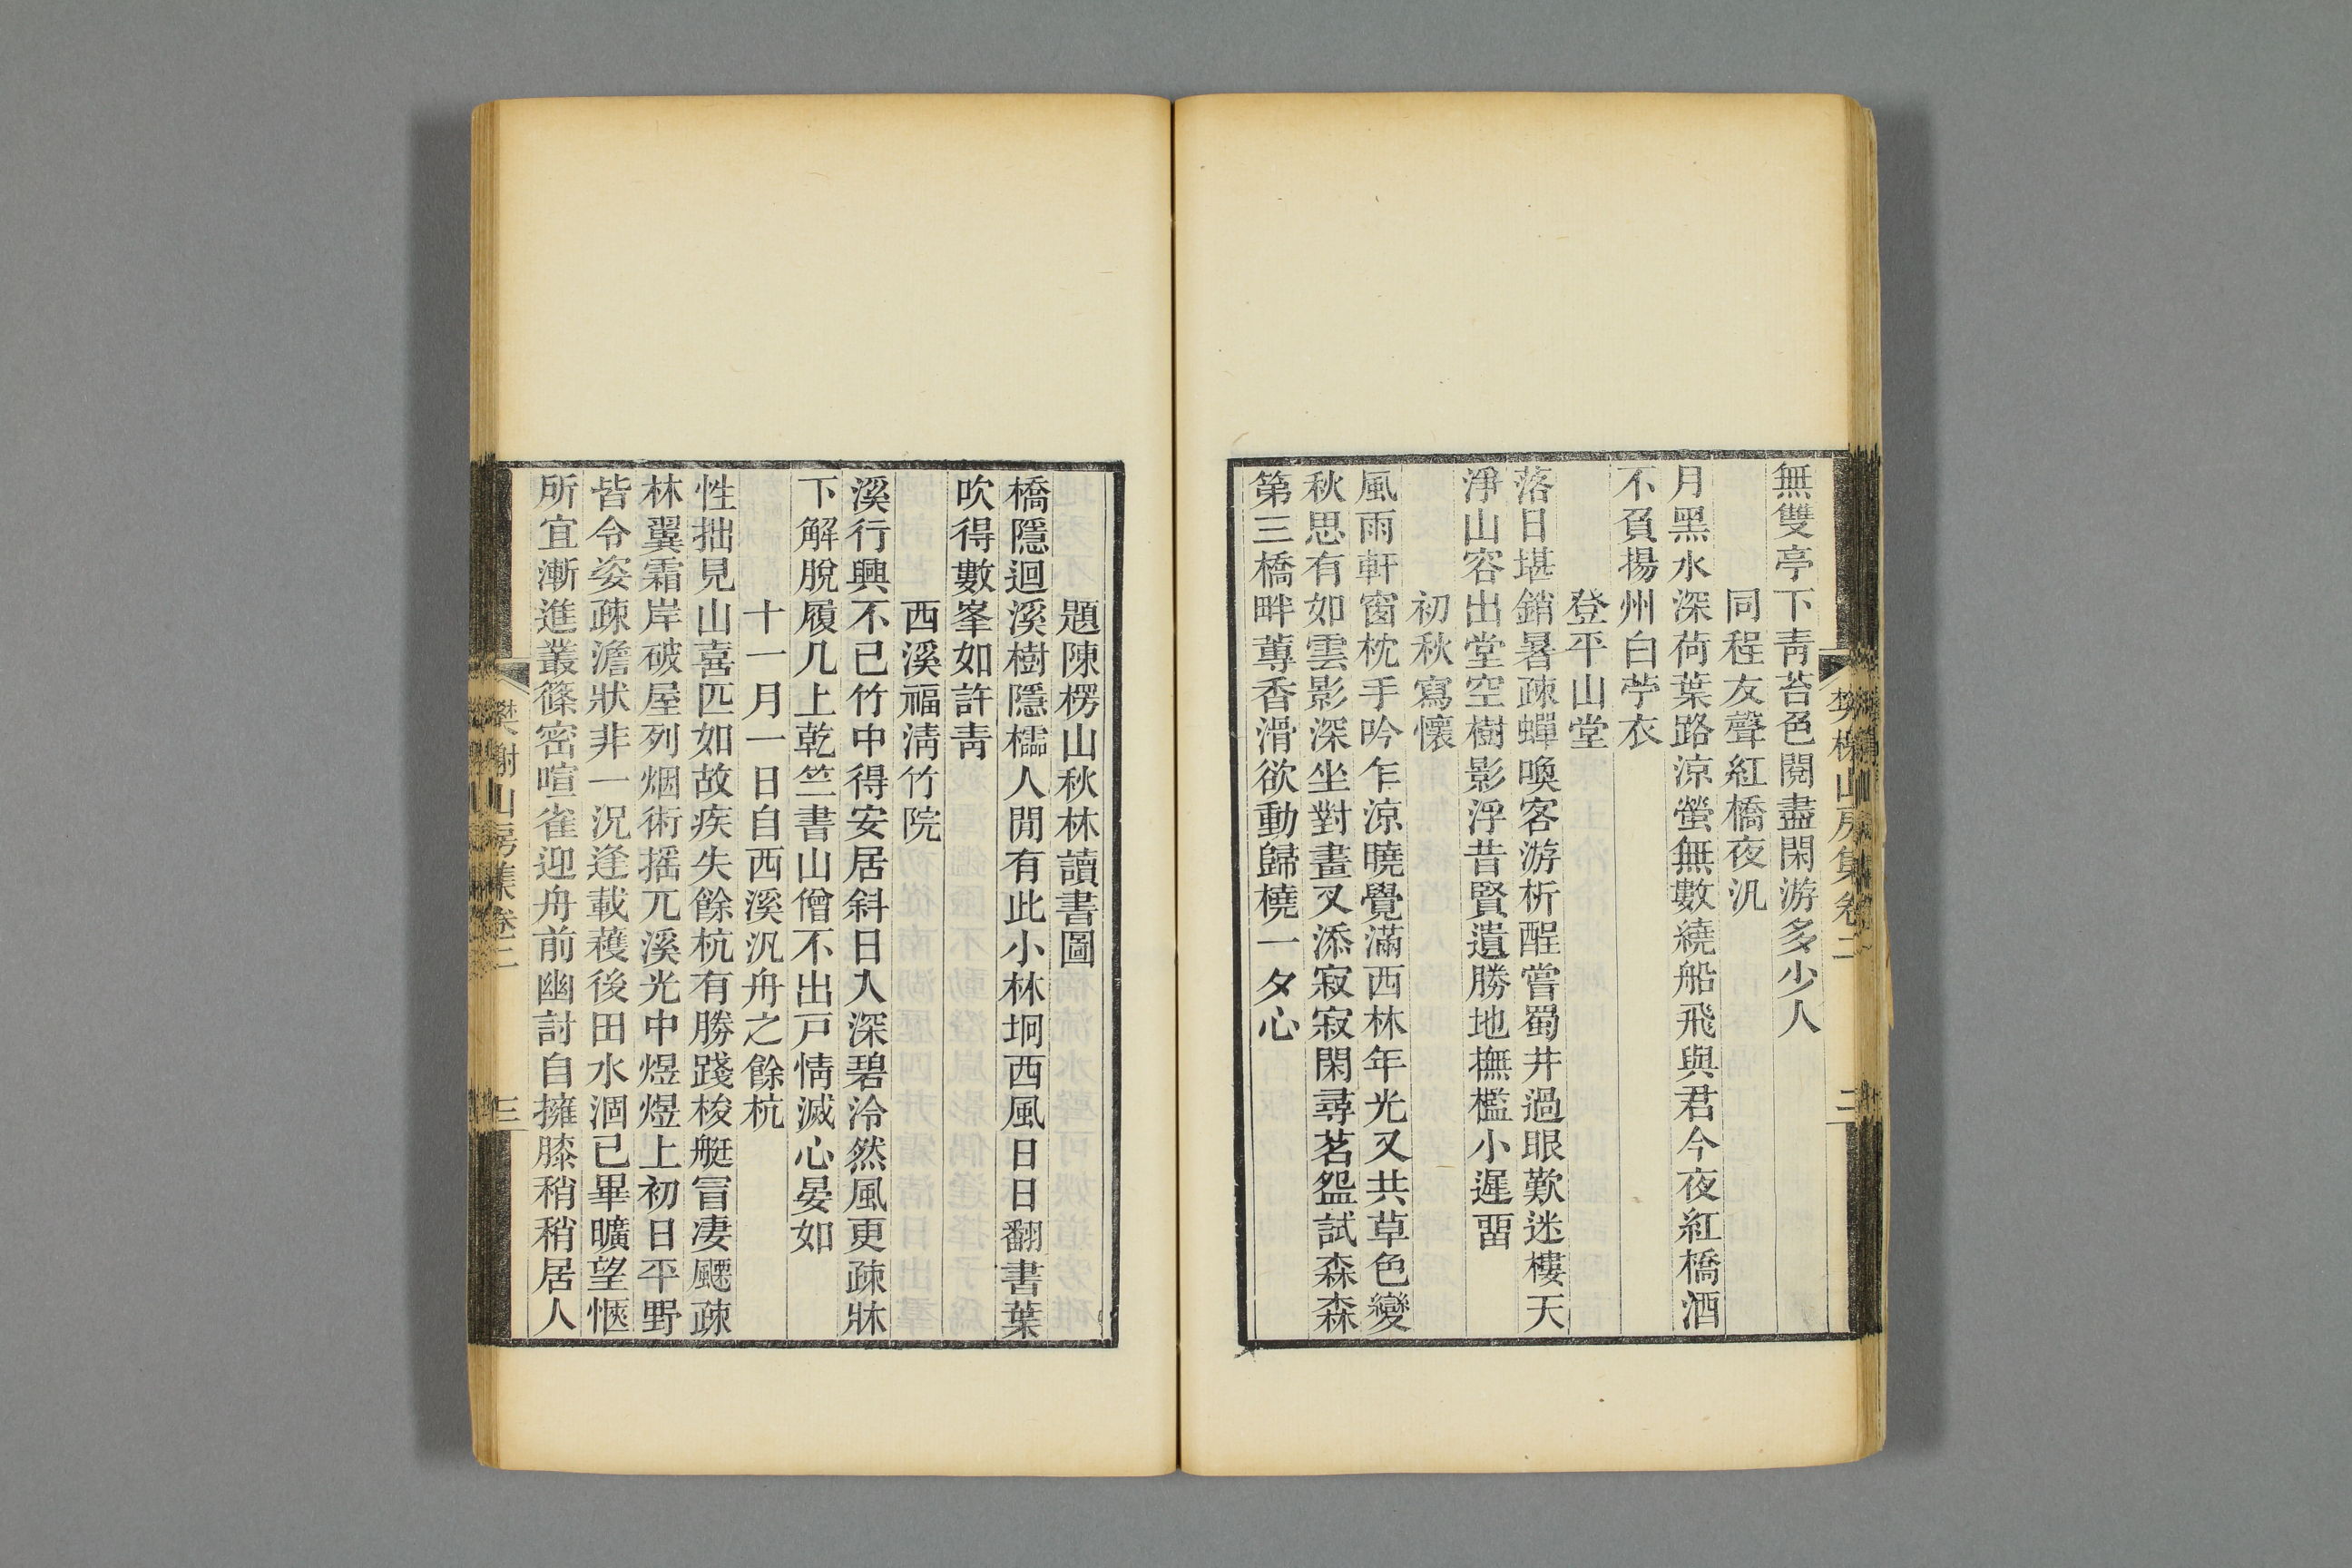 無雙亭下靑苔色閱盡閑游多少人
同程友聲紅橋夜汎
月黑水深荷葉路涼螢無數繞船飛與君今夜紅橋酒
不負揚州白苧衣
登平山堂
落日堪銷暑疎蟬喚客游析酲嘗蜀井過眼歎迷樓天
淨山容出堂空樹影浮昔賢遺勝地撫檻小遲畱
初秋寫懷
風雨軒窗枕手吟乍涼曉覺滿西林年光又共草色變
秋思有如雲影深坐對畫叉添寂寂閑尋茗盌試森森
第三橋畔蓴香滑欲動歸橈一夕心
樊榭山房集卷二
二
題陳楞山秋林讀書圖
橋隱迴溪樹隱櫺人閒有此小林坰西風日日翻書葉
吹得數峯如許靑
西溪福淸竹院
溪行興不已竹中得安居斜日入深碧泠然風更疎牀
下解脫履几上乾竺書山僧不出戸情滅心晏如
十一月一日自西溪汎舟之餘杭
性拙見山喜匹如故疾失餘杭有勝踐梭艇冒凄飂疎
林翼霜岸破屋列烟術搖兀溪光中煜煜上初日平野
皆令姿疎澹狀非一況逢載穫後田水涸已畢曠望愜
所宜漸進叢篠密喧雀迎舟前幽討自擁膝稍稍居人
樊榭山房集卷二
三